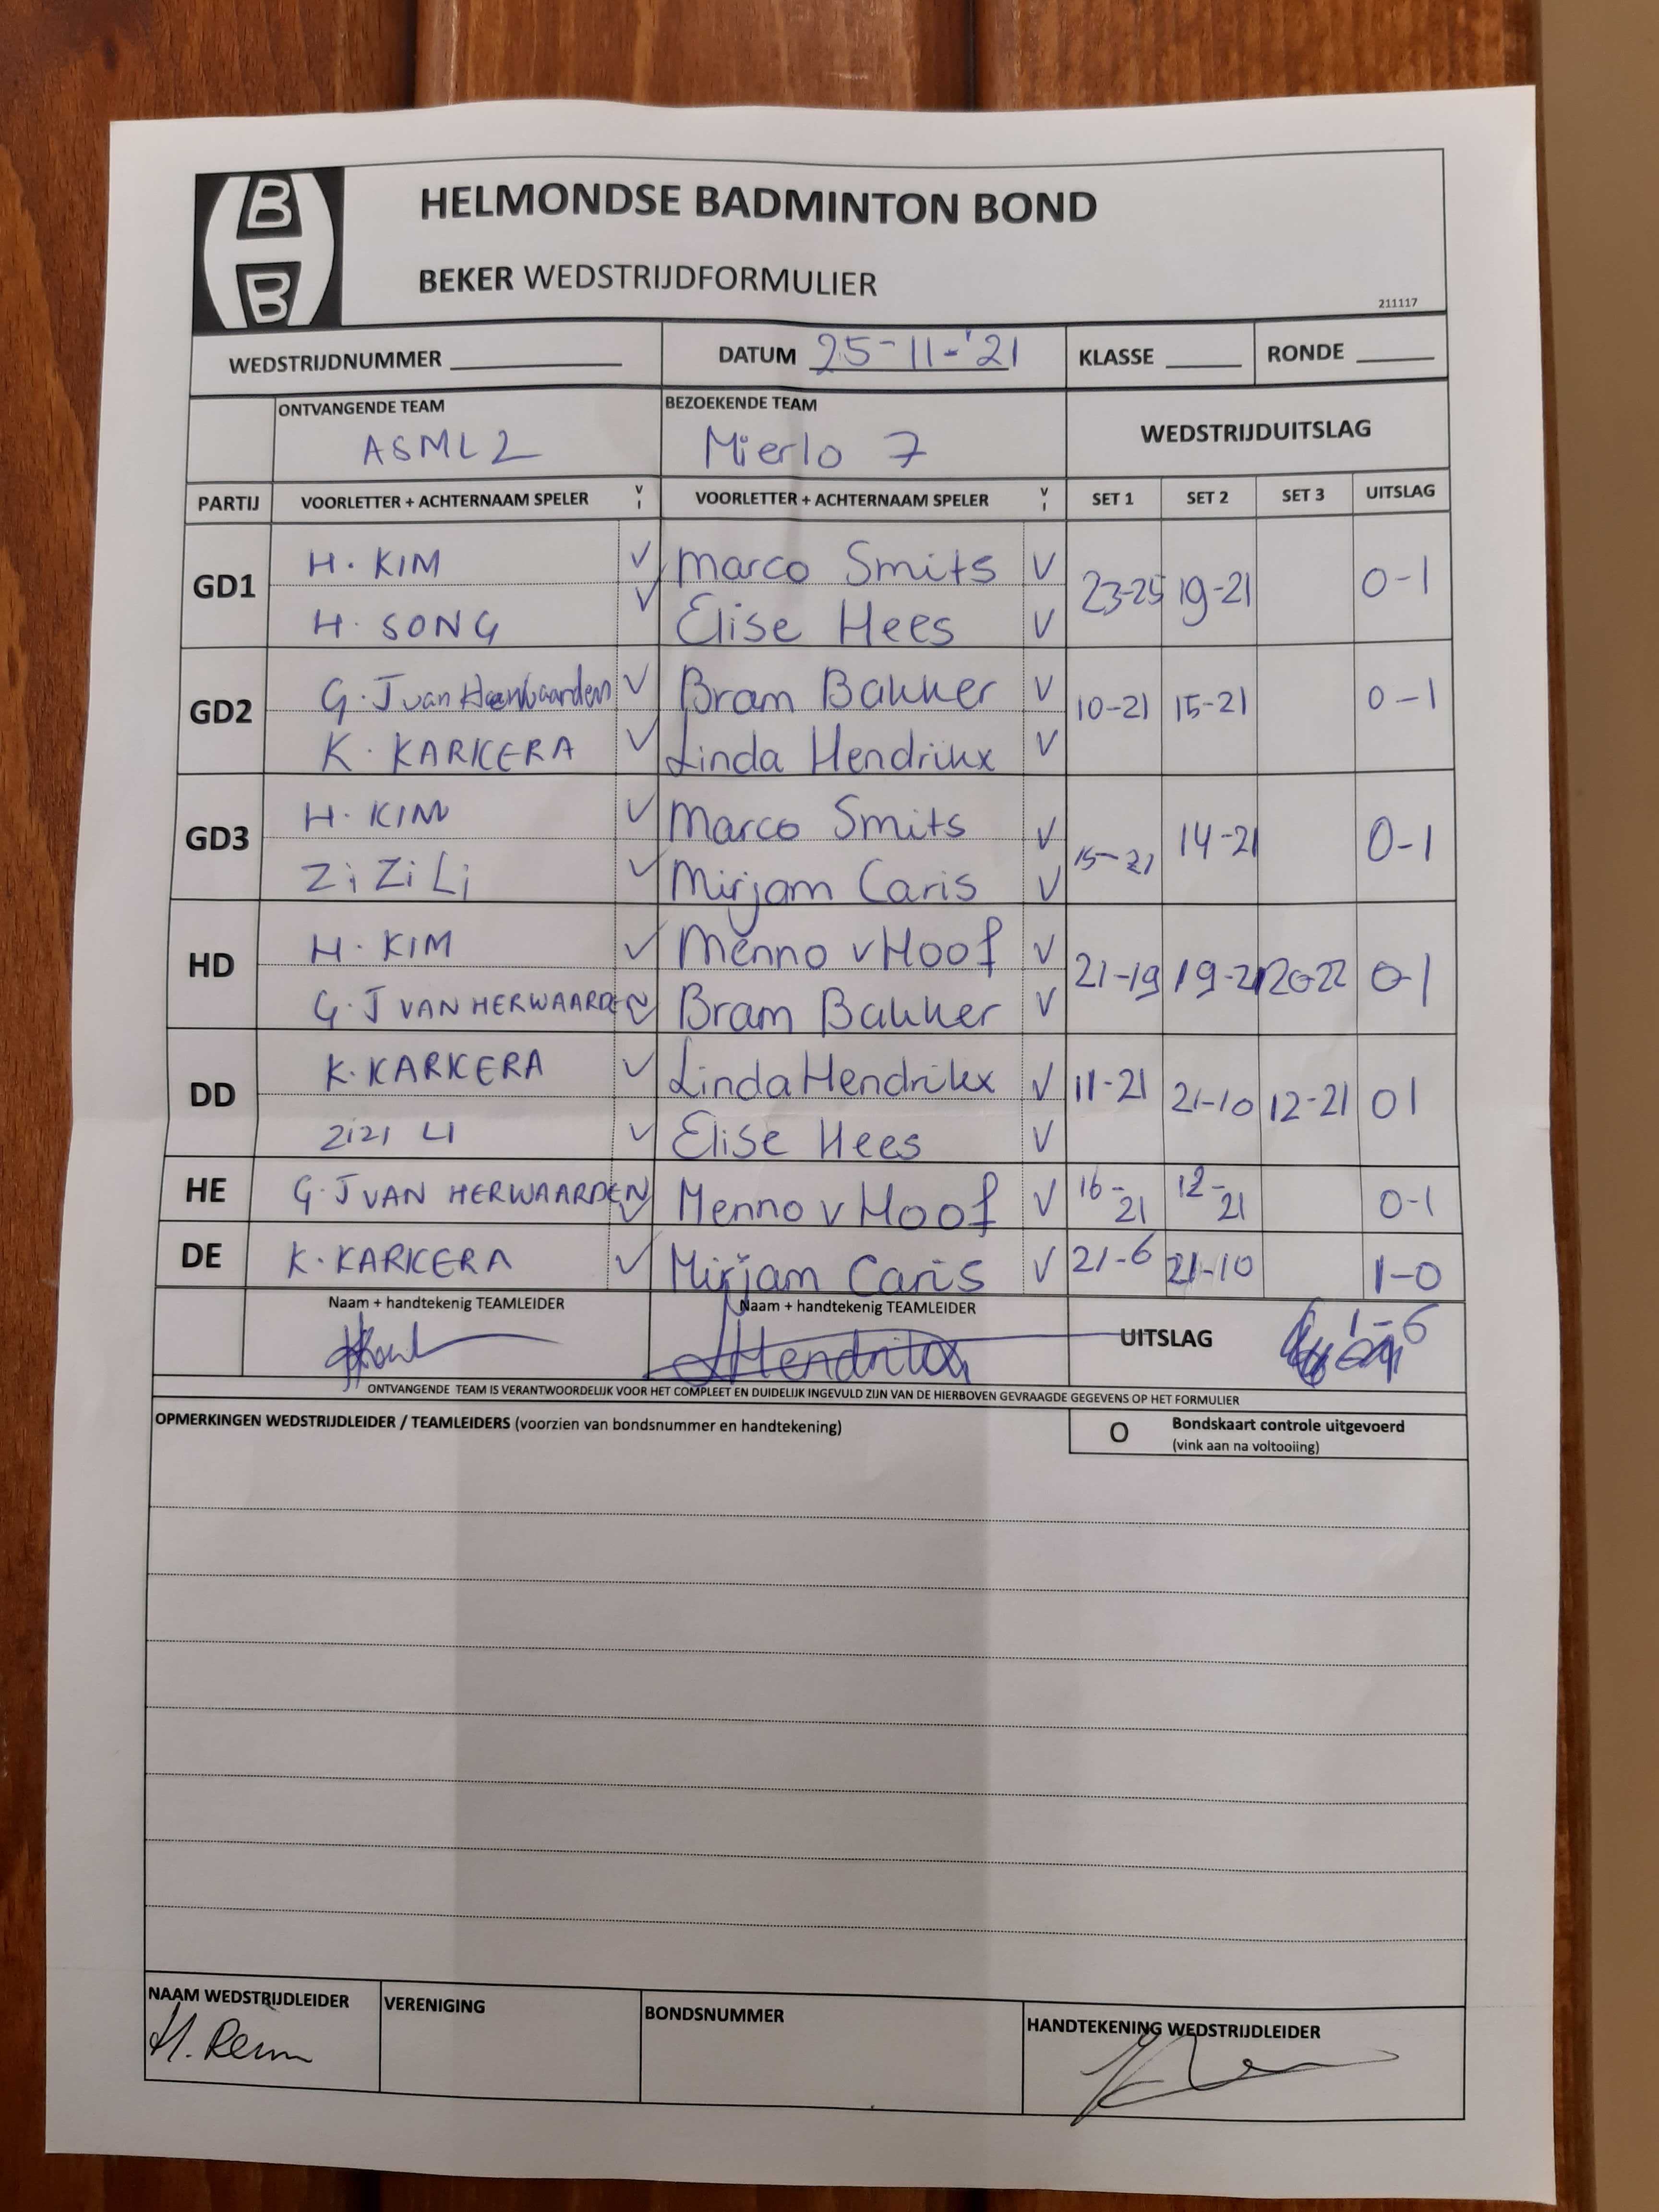 B
B
HELMONDSE BADMINTON BOND
BEKER WEDSTRIJDFORMULIER
211117
WEDSTRIJDNUMMER DATUM 25-11-'21 KLASSE RONDE
ONTVANGENDE TEAM BEZOEKENDE TEAM WEDSTRIJDUITSLAG
ASML 2 Mierlo 7
PARTIJ VOORLETTER + ACHTERNAAM SPELER V I VOORLETTER + ACHTERNAAM SPELER V I SET 1 SET 2 SET 3 UITSLAG
GD1 H. KIM V Marco Smits V 23-25 19-21 0-1
H. SONG V Elise Hees V
GD2 G. J van V Bram Bakker V 10-21 15-21 0-1
K. KARKERA V Linda Hendrikx V
GD3 H. KIM V Marco Smits V 15-21 14-21 0-1
Zi Zi Li V Mirjam Caris V
HD H. KIM V Menno v Hoof V 21-19 19-21 20-22 0-1
G. J VAN HERWAARDEN V Bram Bakker V
DD K. KARKERA V Linda Hendrikx V 11-21 21-10 12-21 0 1
ZIZI LI V Elise Hees V
HE G. J VAN HERWAARDEN V Menno v Hoof V 16-21 12-21 0-1
DE K. KARKERA V Mirjam Caris V 21-6 21-10 1-0
Naam + handtekenig TEAMLEIDER Naam + handtekenig TEAMLEIDER UITSLAG 1-6
ONTVANGENDE TEAM IS VERANTWOORDELIJK VOOR HET COMPLEET EN DUIDELIJK INGEVULD ZIJN VAN DE HIERBOVEN GEVRAAGDE GEGEVENS OP HET FORMULIER
OPMERKINGEN WEDSTRIJDLEIDER / TEAMLEIDERS (voorzien van bondsnummer en handtekening) O Bondskaart controle uitgevoerd
(vink aan na voltooiing)
NAAM WEDSTRIJDLEIDER VERENIGING BONDSNUMMER HANDTEKENING WEDSTRIJDLEIDER
H.